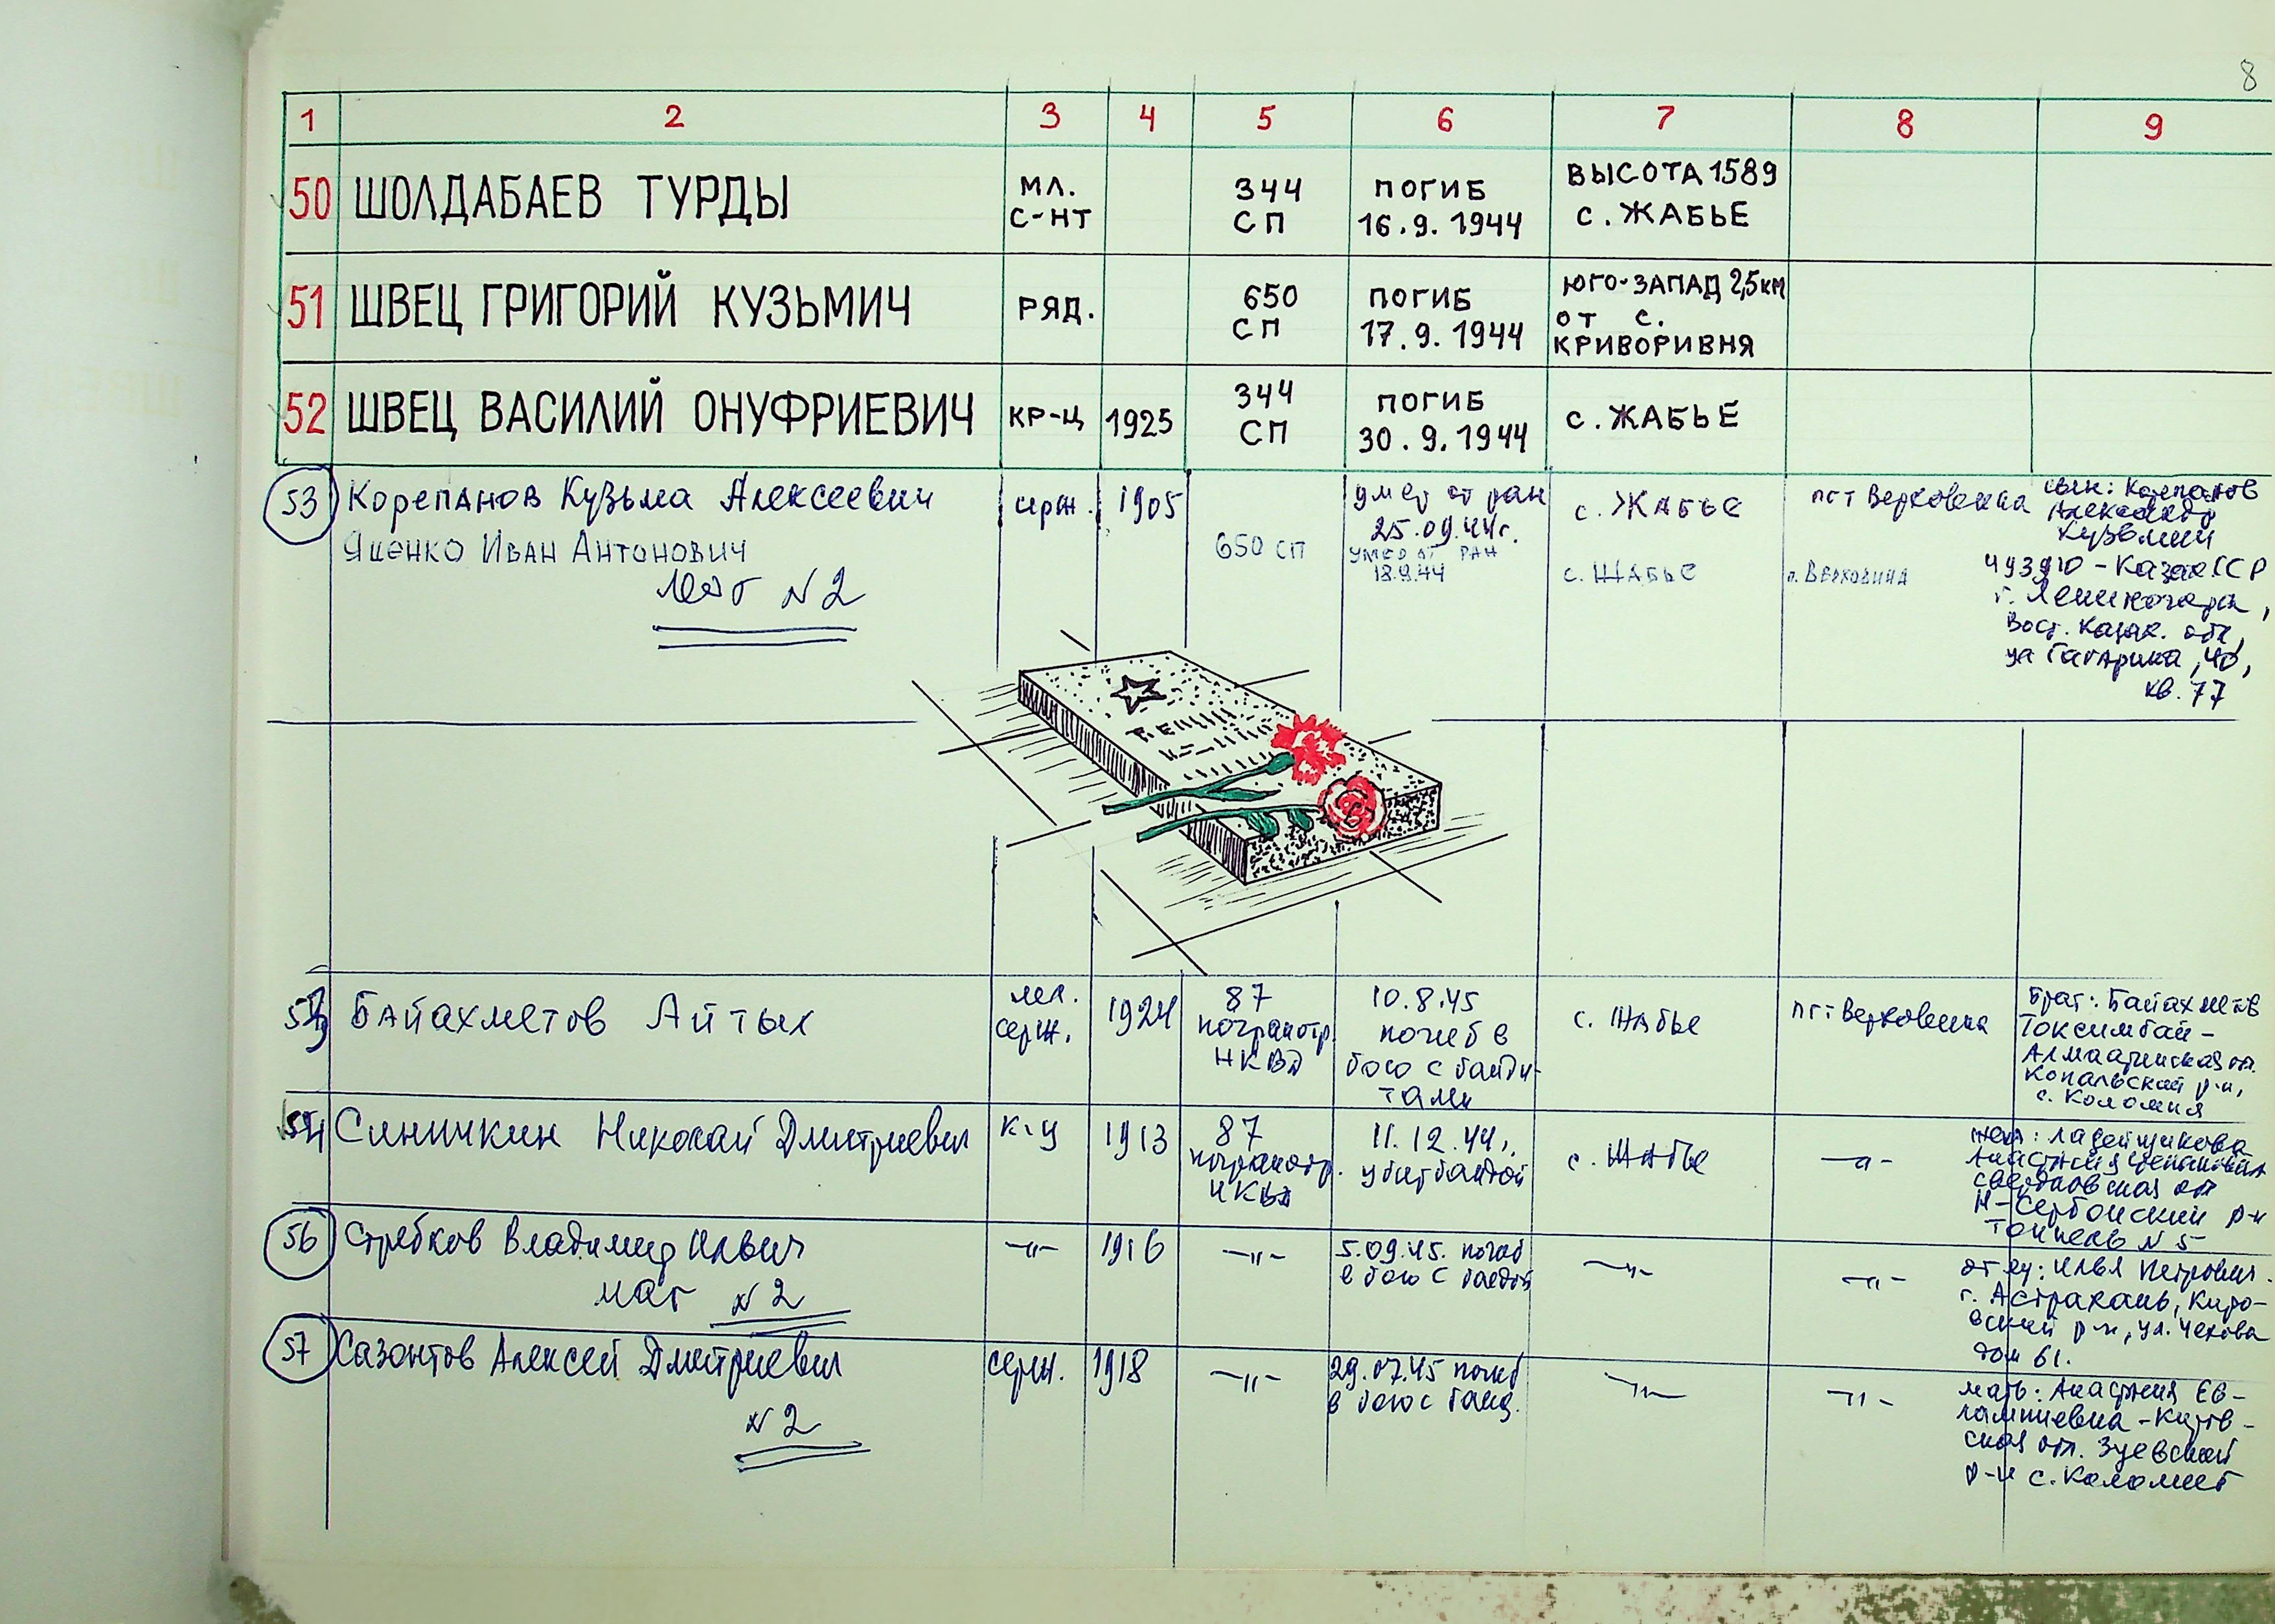 8
1 2 3 4 5 6 7 8 9
50 ШОЛДАБАЕВ ТУРДЫ МЛ. С-НТ 344 СП ПОГИБ 16.9.1944 ВЫСОТА 1589 с. ЖАБЬЕ
51 ШВЕЦ ГРИГОРИЙ КУЗЬМИЧ РЯД. 650 СП ПОГИБ 17.9.1944 ЮГО-ЗАПАД 2,5 км ОТ С. КРИВОРИВНЯ
52 ШВЕЦ ВАСИЛИЙ ОНУФРИЕВИЧ КР-Ц 1925 344 СП ПОГИБ 30.9.1944 с. ЖАБЬЕ
53 Корепанов Кузьма Алексеевич серж. 1905 умер от ран 25.09.44г. с. Жабье пгт Верховина
сын: Корепанов
Александр
Кузьмич
493910 - Казах.ССР
г. Лениногорск,
Вост. Казах. обл,
ул Гагарина, 40,
кв. 77
Яценко Иван Антонович 650 СП УМЕР ОТ РАН 18.9.44 с. ЖАБЬЕ п. ВЕРХОВИНА
№2
Байахметов Айтык мл. серж. 1924 87 погранотр. НКВД 10.8.45 погиб в бою с бандитами с. Жабье пгт Верховина
брат: Байахметов
Токсимбай -
Алмаатинская обл.
Копальский р-н,
с. Коломия
54 Синичкин Николай Дмитриевич к-ц 1913 87 погранотр. НКВД 11.12.44г. убит бандой с. Жабье —"—
жена: Ладейщикова
Анастасия Степановна
Свердловская обл
Н-Сергинский р-н
Тоннель № 5
56 Стребков Владимир Ильич —"— 1916 —"— 5.09.45. погиб в бою с бандой —"— —"—
отец: Илья Петрович.
г. Астрахань, Киро-
вский р-н, ул. Чехова
дом 61.
№2
57 Сазонтов Алексей Дмитриевич серж. 1918 —"— 29.07.45 погиб в бою с банд. —"— —"—
мать: Анастасия Ев-
лампиевна - Киров-
ская обл. Зуевский
р-н с. Коломиец
№2